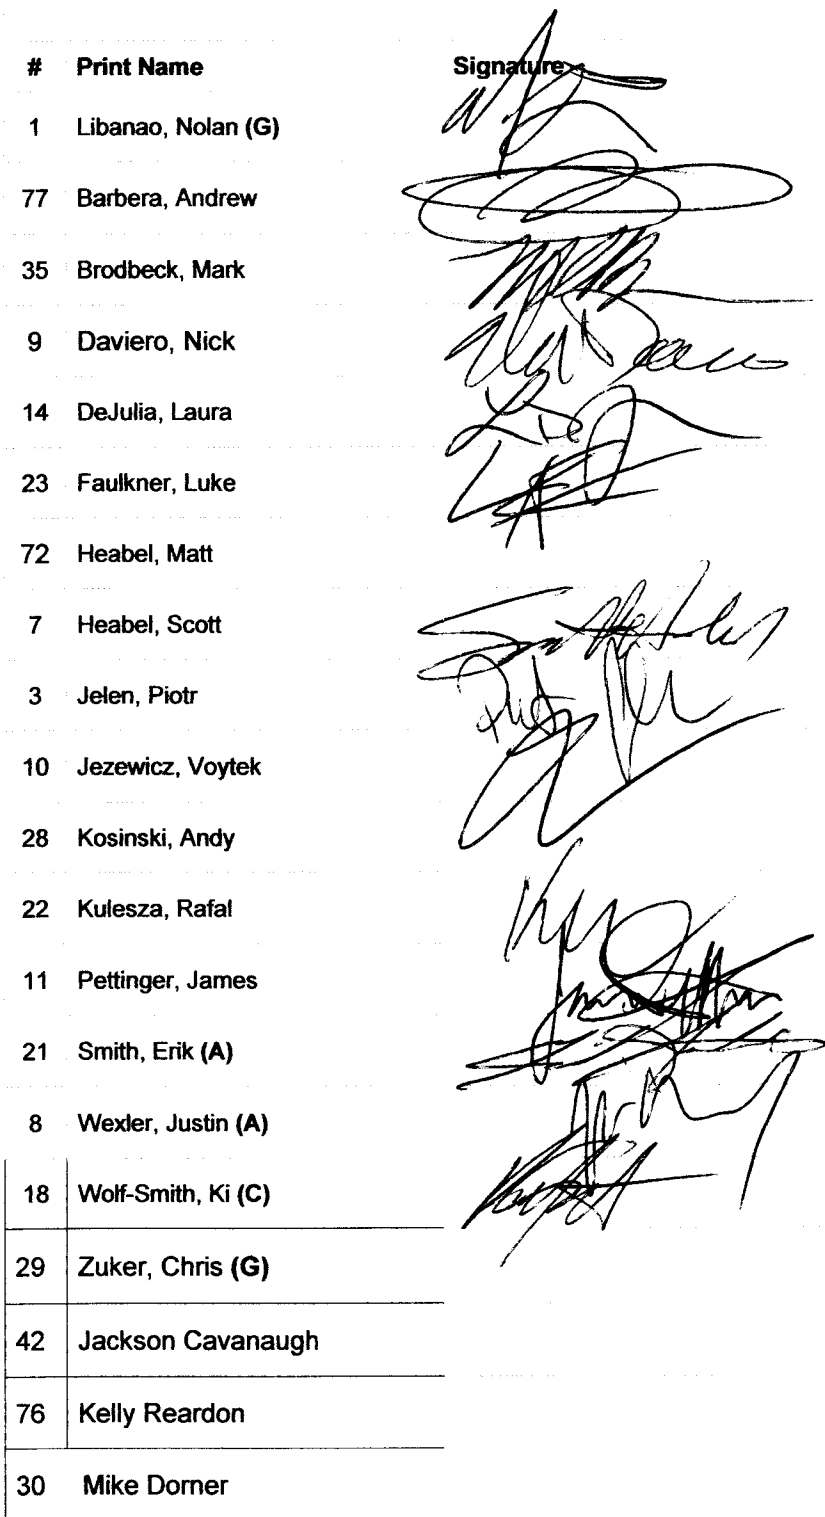 # Print Name Signature
1 Libanao, Nolan (G)
77 Barbera, Andrew
35 Brodbeck, Mark
9 Daviero, Nick
14 DeJulia, Laura
23 Faulkner, Luke
72 Heabel, Matt
7 Heabel, Scott
3 Jelen, Piotr
10 Jezewicz, Voytek
28 Kosinski, Andy
22 Kulesza, Rafal
11 Pettinger, James
21 Smith, Erik (A)
8 Wexler, Justin (A)
18 Wolf-Smith, Ki (C)
29 Zuker, Chris (G)
42 Jackson Cavanaugh
76 Kelly Reardon
30 Mike Dorner